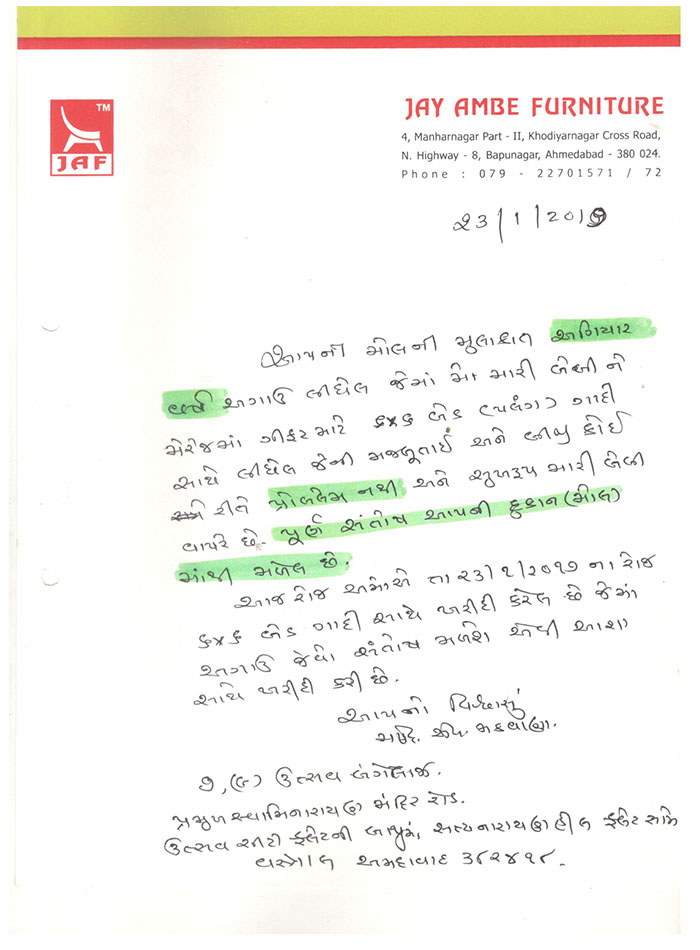 TM
JAF
JAY AMBE FURNITURE
4, Manharnagar Part - II, Khodiyarnagar Cross Road,
N. Highway - 8, Bapunagar, Ahmedabad - 380 024.
Phone : 079 - 22701571 / 72
૨૩/૧/૨૦૧૭
આપની મોલની મુલાકાત અગિયાર
વર્ષ અગાઉ લીધેલ જેમાં મારી બેબી ને
મેરેજમાં ગીફ્ટ માટે ૬x૬ બેડ (પલંગ) ગાદી
સાથે લીધેલ જેની મજબૂતાઈ અને બીજી કોઈ
રીતે પ્રોબ્લેમ નથી અને સુખરૂપ મારી બેબી
વાપરે છે. પૂર્ણ સંતોષ આપની દુકાન (મોલ)
માંથી મળેલ છે.
આજ રોજ અમોએ તા ૨૩/૧/૨૦૧૭ ના રોજ
૬x૬ બેડ ગાદી સાથે ખરીદી કરેલ છે જેમાં
અગાઉ જેવો સંતોષ મળશે એવી આશા
સાથે ખરીદી કરી છે.
આપનો વિશ્વાસુ
મકવાણા.
૭,(બ) ઉત્સવ બંગ્લોઝ.
પ્રમુખ સ્વામિનારાયણ મંદિર રોડ.
ઉત્સવ સીટી ફ્લેટની બાજુમાં, સત્યનારાયણ હીલ ફ્લેટ સામે
વસ્ત્રાલ અમદાવાદ ૩૮૨૪૧૮.